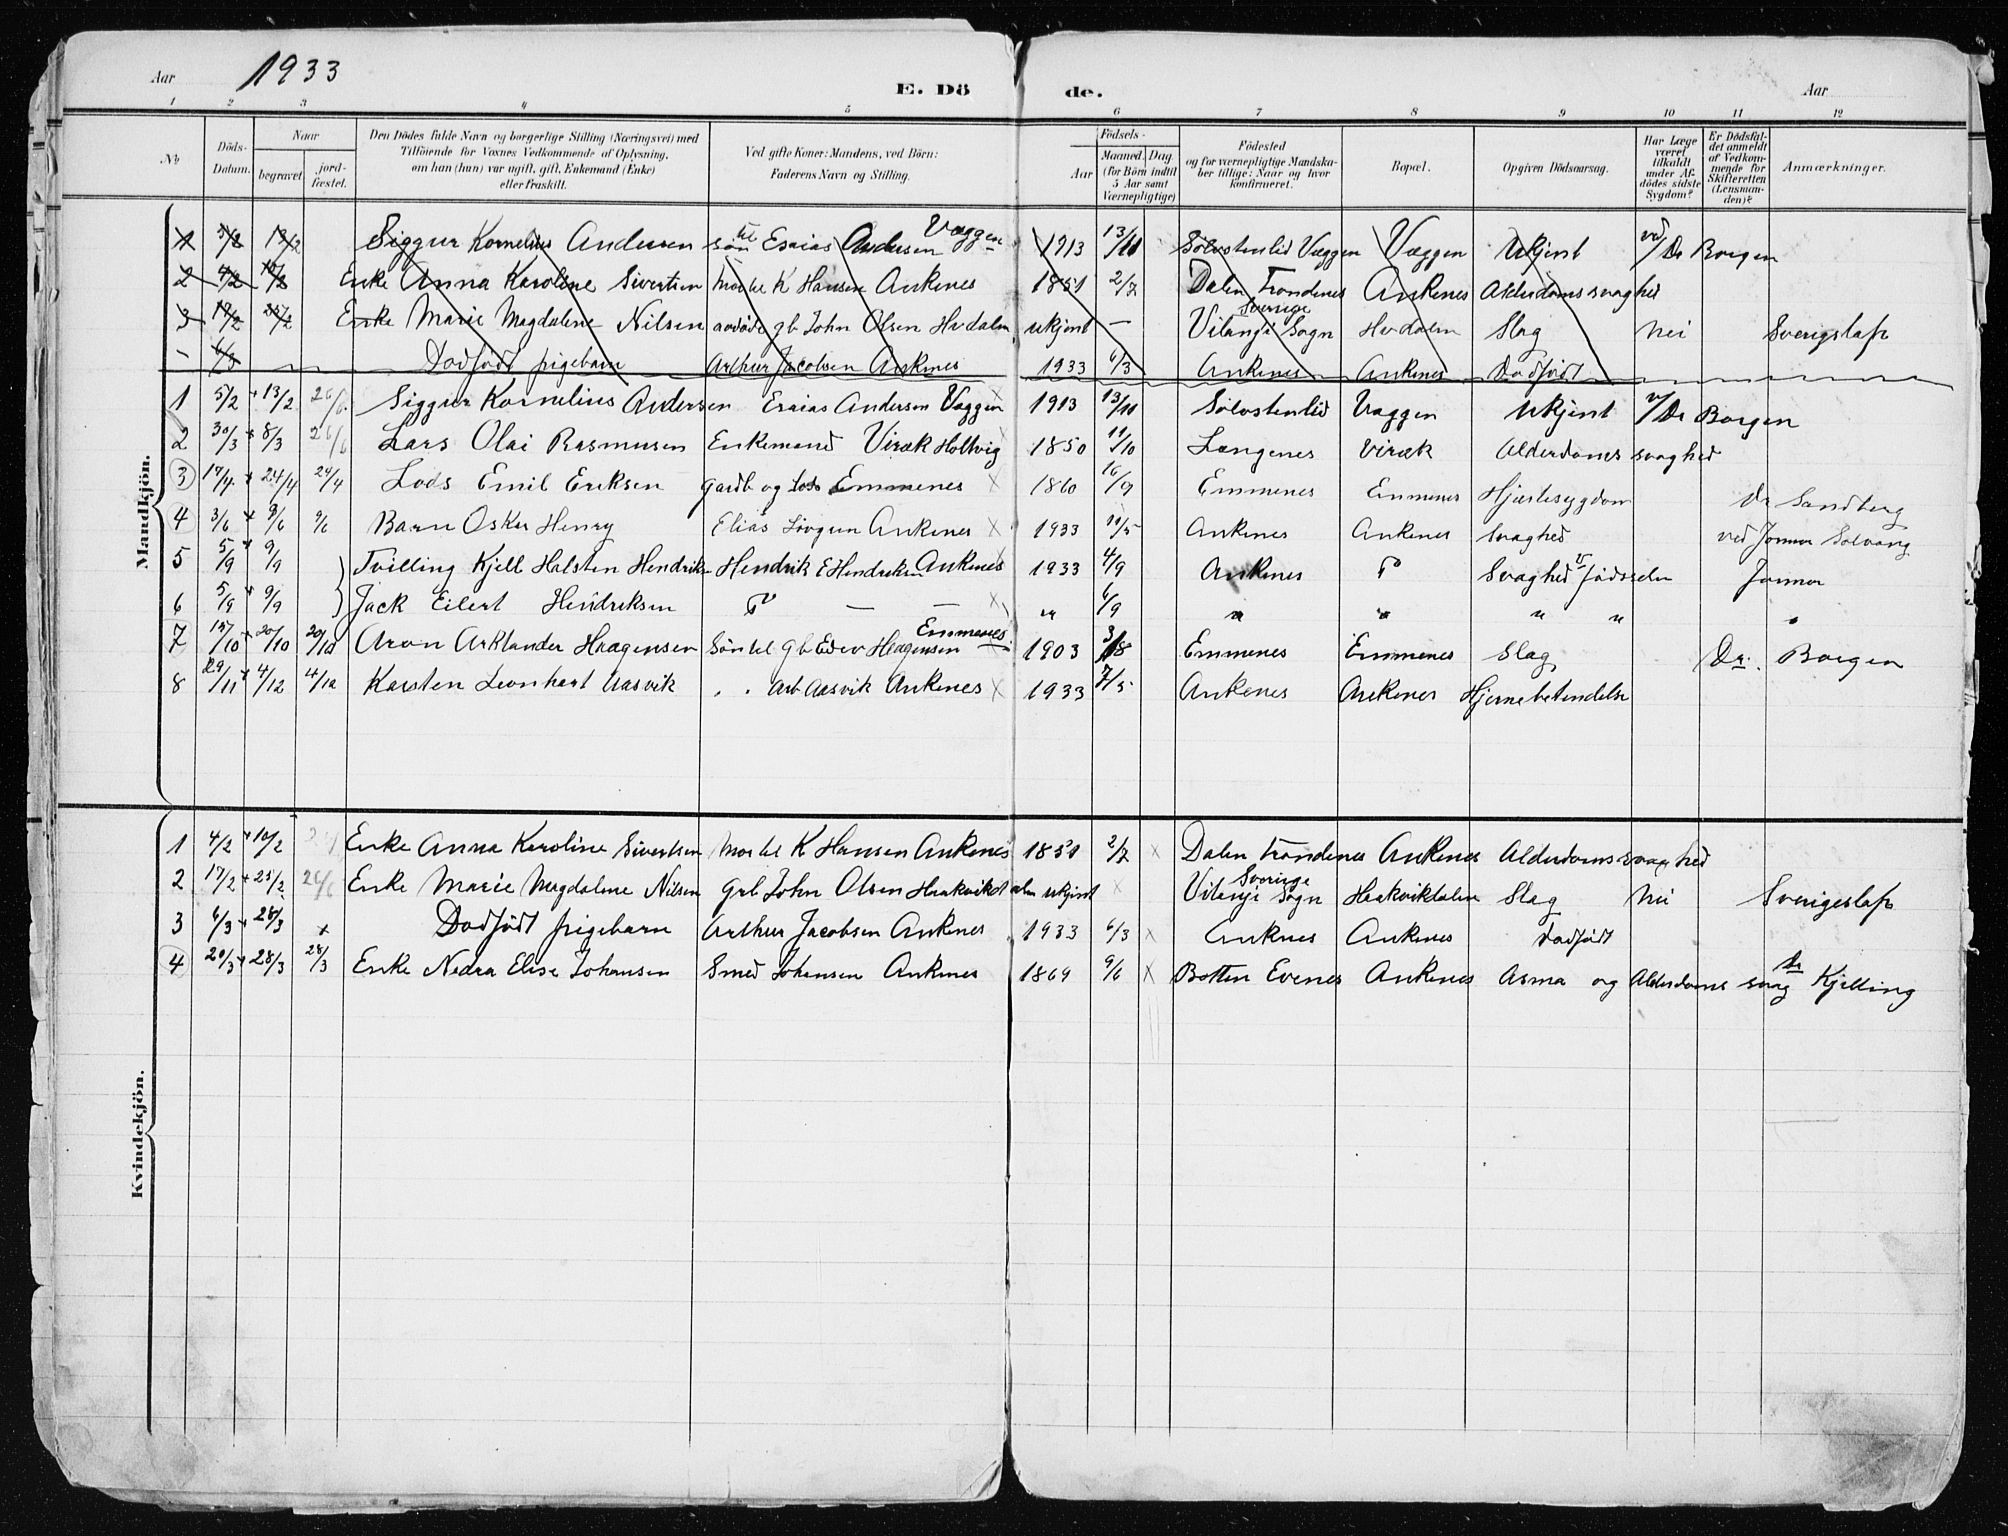 Aar 1933 E. Dö de. Aar
1 2 3 4 5 6 7 8 9 10 11 12
No Döds-Datum. Naar begravet jordfæstet. Den Dödes fulde Navn og borgerlige Stilling (Næringsvei) med Tilföiende for Voxnes Vedkommende af Oplysning, om han (hun) var ugift, gift, Enkemand (Enke) eller fraskilt. Ved gifte Koner: Mandens, ved Börn: Faderens Navn og Stilling. Födsels- Aar Maaned. Dag. (for Börn indtil 5 Aar samt Værnepligtige) Födested og for værnepligtige Mandskaber tillige: Naar og hvor konfirmeret. Bopæl. Opgiven Dödsaarsag. Har Læge været tilkaldt under Afdödes sidste Sygdom? Er Dödsfaldet anmeldt af Vedkommende for Skifteretten (Lensmanden)? Anmærkninger.
Mandkjön.
1 5/2 13/2 Siggur Kornelius Andersen sön til Esaias Andersen Væggen 1913 13/11 Sölvstenlid Væggen Væggen Ukjent ved/Dr Borgen
2 4/2 10/2 Enke Anna Karoline Sivertsen Mor til K Hansen Ankenes 1851 2/7 Dalen Trondenes Ankenes Alderdomssvaghed
3 17/2 25/2 Enke Marie Magdalene Nilsen gb John Olsen Hvdalen ukjent — Vitangi Sogn Sverige Hvdalen Slag Nei Sverigslap
- 6/3 Dodfödt pigebarn Arthur Jacobsen Ankenes 1933 6/3 Ankenes Ankenes Dodfödt
1 5/2 + 13/2 26/6 Siggur Kornelius Andersen Esaias Andersen Væggen 1913 13/11 Sölvstenlid Væggen Ukjent v/Dr Borgen
2 30/3 + 8/3 26/6 Lars Olai Rasmusen Enkemand Viræk Holtvig 1850 11/10 Langenes Viræk Alderdoms svaghed
3 17/4 + 24/4 24/4 Lods Emil Eriksen gardb og Lods Emmenes X 1860 16/9 Emmenes Emmenes Hjertesygdom Dr Sandberg
4 3/6 + 9/6 9/6 Barn Oskar Henry Elias Lövgren Ankenes X 1933 11/5 Ankenes Ankenes Svaghed ved Jormor Solvang
5 5/9 + 9/9 Tvilling Kjell Halsten Hendriksen Hendrik E Hendriksen Ankenes 1933 4/9 Ankenes Svaghed v födselen Jormor
6 5/9 + 9/9 Jack Eilert Hendriksen — — X " 4/9 " " " " "
7 15/10 + 20/10 20/10 Aron Arklander Haagensen Sön til gb Edev Haagensen Emmenes 1903 3/8 Emmenes Emmenes Slag Dr. Borgen
8 29/11 + 4/12 4/12 Karsten Leonhart Aasvik . . Arb Aasvik Ankenes X 1933 7/5 Ankenes Ankenes Hjernebetendelse
Kvindekjön.
1 4/2 + 10/2 Enke Anna Karoline Sivertsen Mor til K Hansen Ankenes 1851 2/7 X Dalen Trondenes Ankenes Alderdomssvaghed
2 17/2 + 25/2 26/6 Enke Marie Magdalene Nilsen grb John Olsen Haakvikdalen ukjent X Vitangi Sogn Sverige Haakvikdalen Slag Nei Sverigeslap
3 6/3 + 28/3 x Dodfödt pigebarn Arthur Jacobsen Ankenes 1933 6/3 X Anknes Ankenes Dodfödt
4 20/3 + 28/3 28/3 Enke Nedra Elise Johansen Smed Johansen Ankenes 1869 9/6 X Botten Evenes Ankenes Asma og Alderdoms svag Dr Kjelling